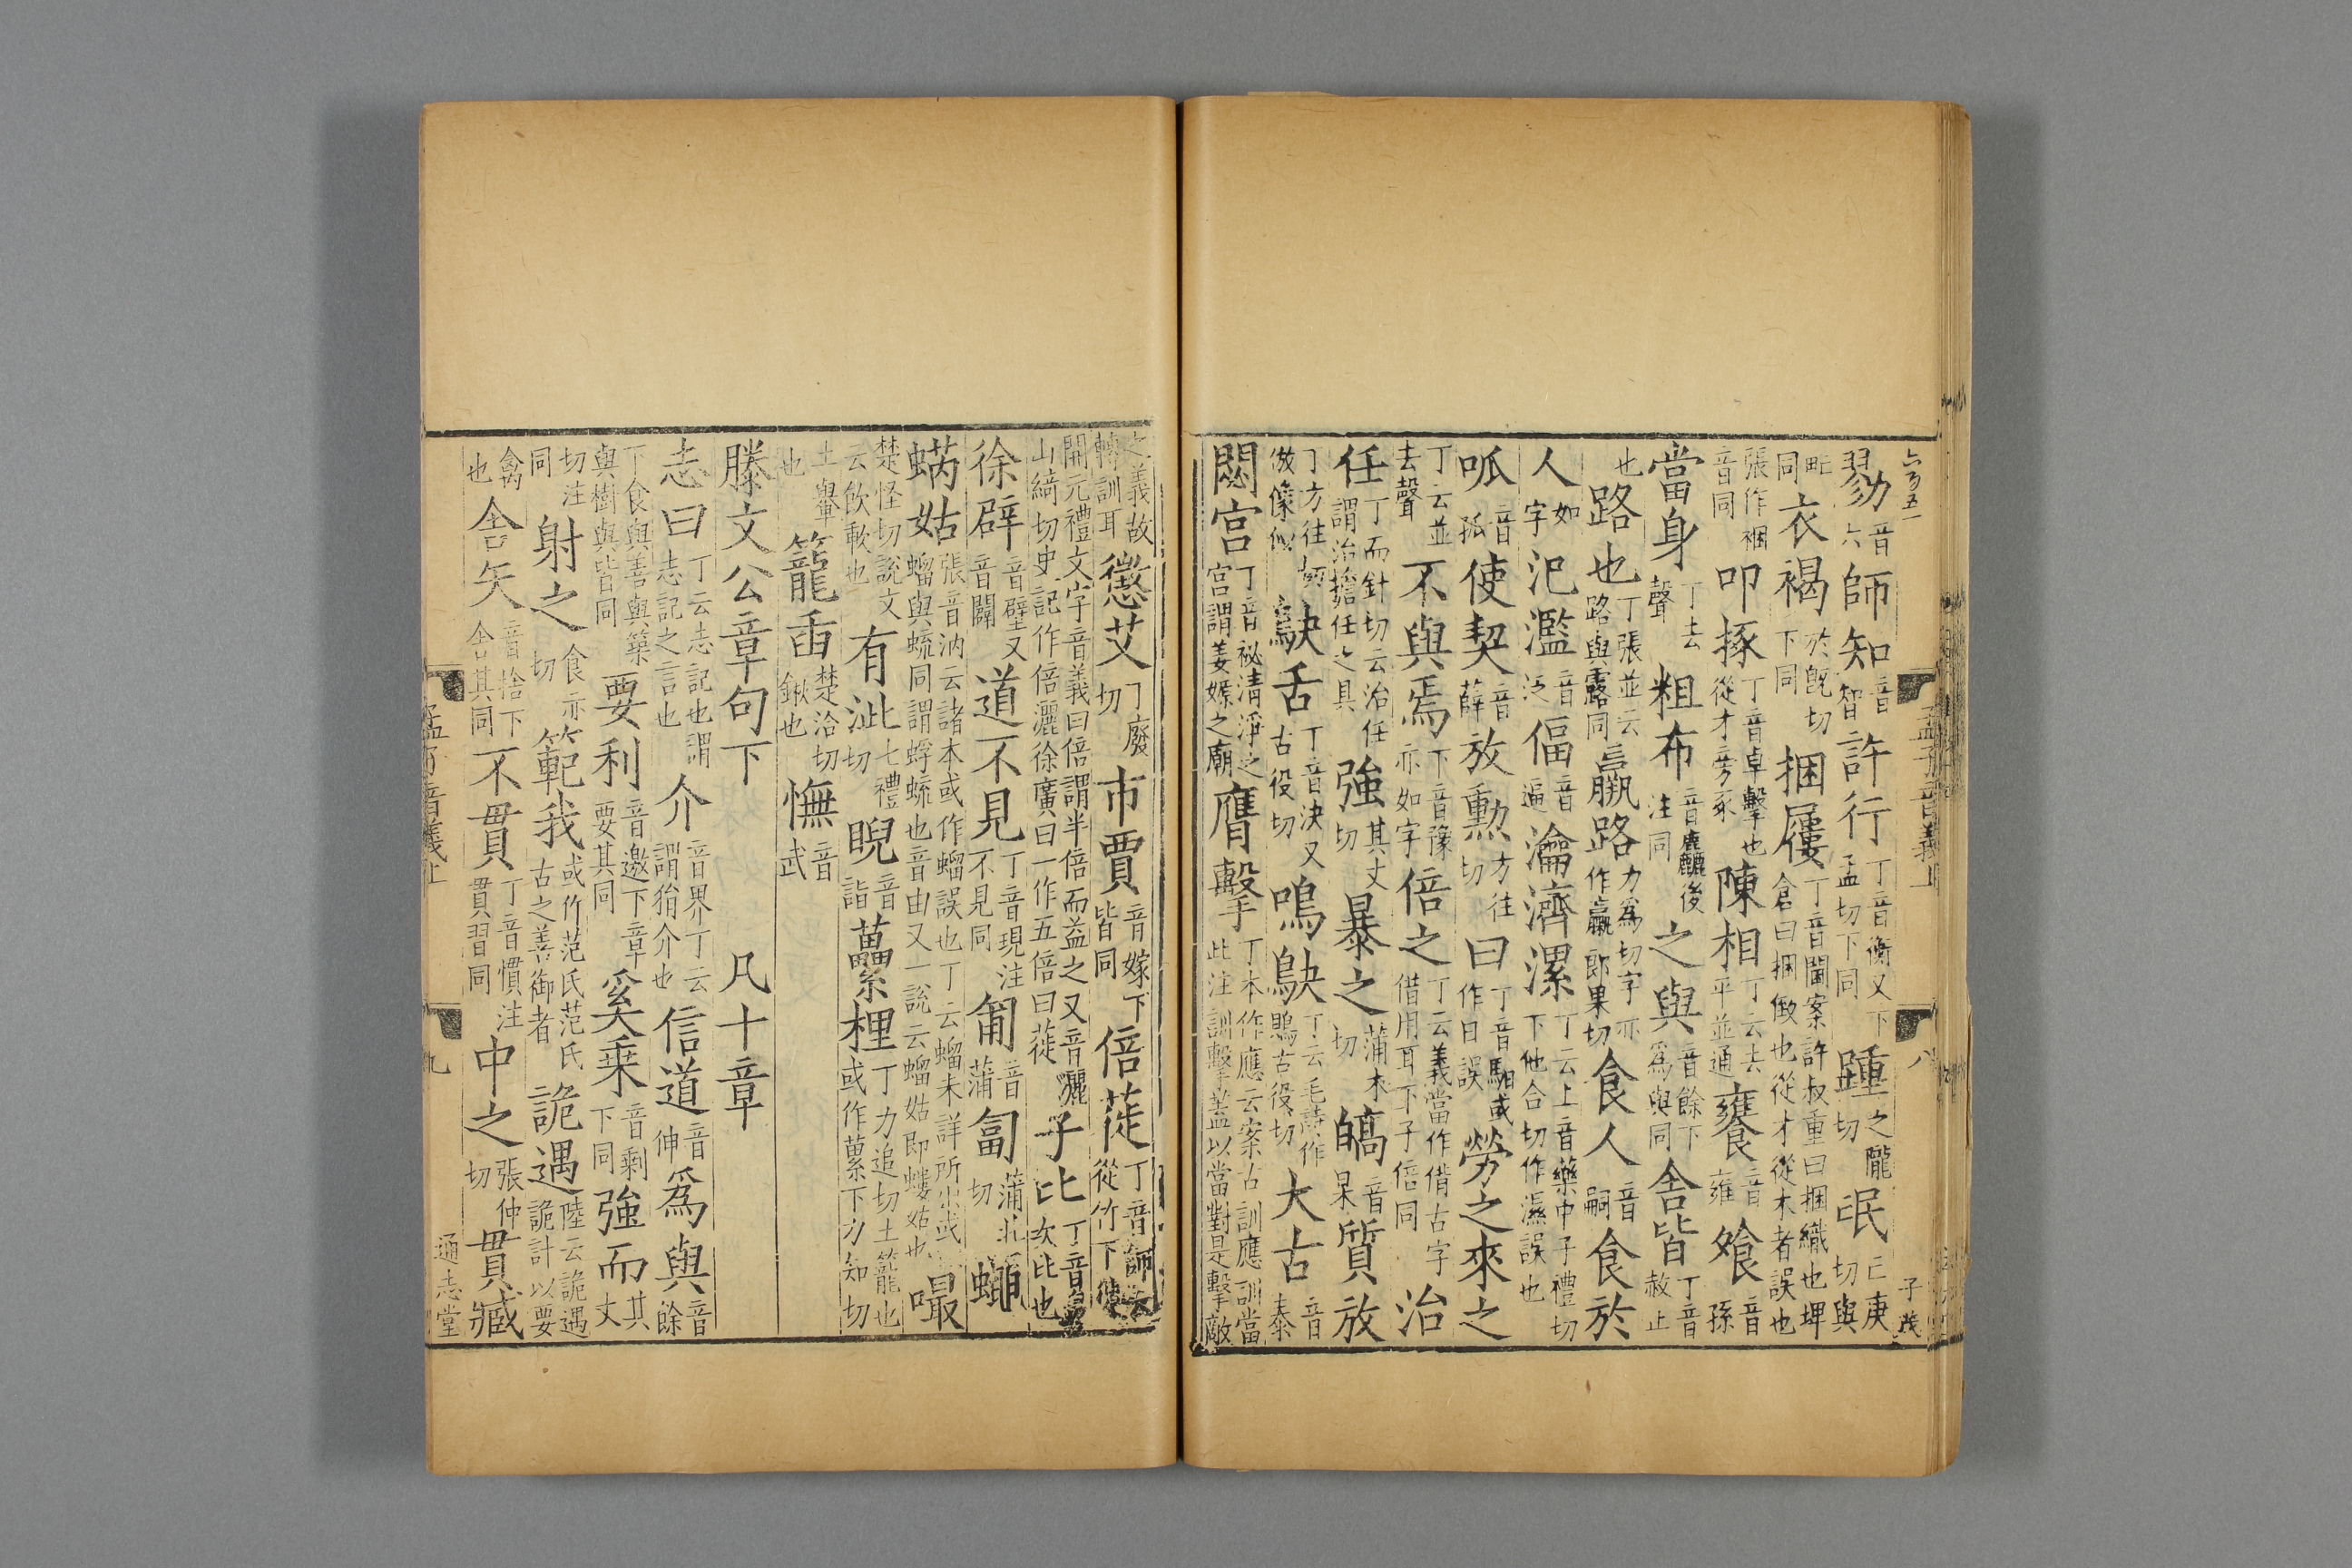 六百五一
孟子音義上 八 子茂
勠音六師知音智許行丁音衡又下孟切下同踵之隴切氓亡庚切與
甿同衣褐於旣切下同捆屨丁音閫案許叔重曰捆織也埤倉曰捆㨖也從才從木者誤也
張作裍音同叩㧻丁音卓擊也從才旁豕陳相丁云去平並通饔音雍飧音孫
當身丁去聲粗布音麤後注同之與音餘下爲與同舍皆丁音赦止
也路也丁張並云路與露同羸路力爲切字亦作臝郎果切食人音嗣食於
人如字氾濫音泛偪音逼瀹濟漯丁云上音藥中子禮切下他合切作濕誤也
呱音孤使契音薛放勲方往切曰丁音馹或作日誤勞之來之
丁云並去聲不與焉下音豫亦如字倍之丁云義當作偝古字借用耳下子倍同治
任丁而針切云治任謂治擔任之具強其丈切暴之蒲木切皜音杲質放
丁方往切放像似鴃舌丁音決又古役切鳴鴃丁云毛詩作鵙古役切大古音泰
閟宮丁音祕清淨之宮謂姜嫄之廟膺擊丁本作應云案古訓應訓當此注訓擊葢以當對是擊敵
之義故轉訓耳懲艾丁廢切市賈音嫁下皆同倍蓰丁音師云從竹下
開元禮文字音義曰倍謂半倍而益之又音灑山綺切史記作倍灑徐廣曰一作五倍曰蓰子比丁音次比也
徐辟音壁又音闢道不見丁音現注不見同匍音蒲匐蒲北切蠅
蜹姑張音汭云諸本或作蝤誤也丁云蝤未詳所出或蝤與蛷同謂蜉蛷也音由又一說云蝤姑即螻姑也嘬
楚怪切說文云飲歃也有泚七禮切睨音詣虆梩丁力追切土籠也或作蔂下力知切
土轝也籠臿楚洽切鍬也憮音武
滕文公章句下 凡十章
志曰丁云志記也謂志記之言也介音界丁云謂狷介也信道音伸爲與音餘
下食與善與築與樹與皆同要利音邀下章要其同奚乘音剩下同強而其丈
切注同射之食亦切範我或作范氏范氏古之善御者詭遇陸云詭遇詭計以要
禽也舍矢音捨下舍其同不貫丁音慣注貫習同中之張仲切貫臧
九 通志堂